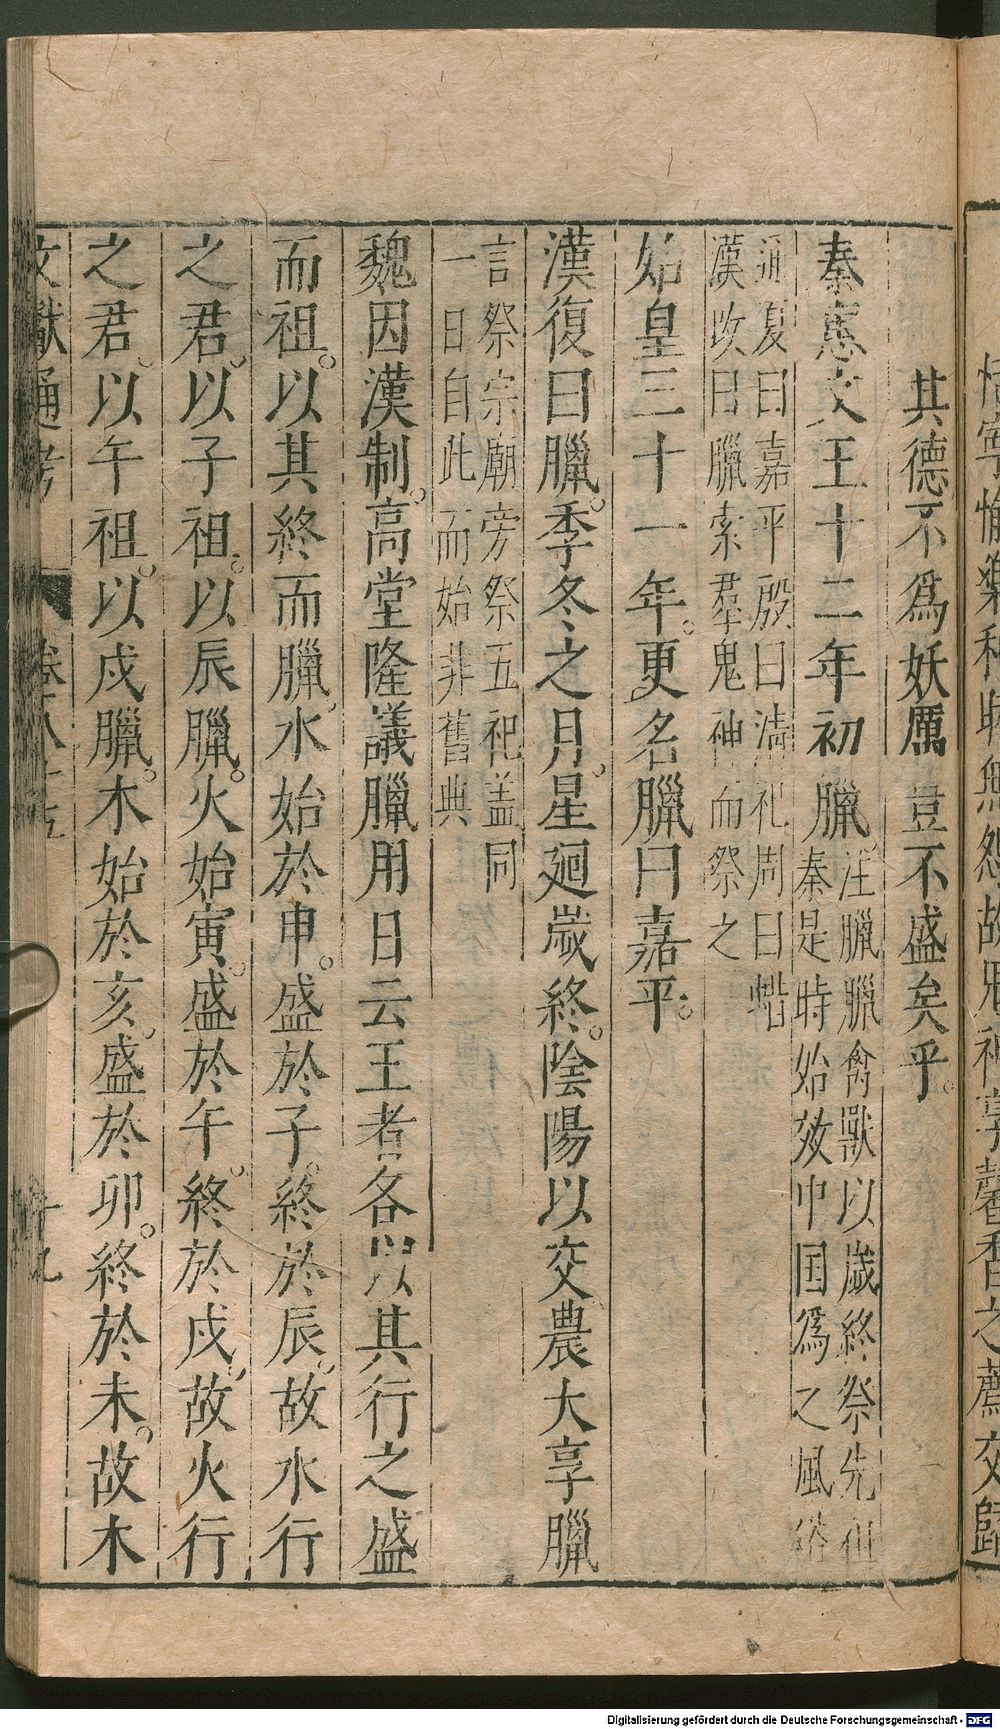 其德不爲妖厲豈不盛矣乎。
秦惠文王十二年初臘注臘臘禽獸以歲終祭先祖
秦是時始效中国爲之風俗
通夏曰嘉平殷曰淸祀周曰蜡
漢改曰臘索羣鬼神而祭之
始皇三十一年。更名臘曰嘉平。
漢復曰臘。季冬之月。星廻歲終。陰陽以交農大享臘
言祭宗廟旁祭五祀盖同
一日自此而始非舊典
魏因漢制。高堂隆議臘用日云王者各以其行之盛
而祖。以其終而臘。水始於申。盛於子。終於辰。故水行
之君。以子祖。以辰臘。火始寅。盛於午。終於戍。故火行
之君。以午祖。以戍臘。木始於亥。盛於卯。終於未。故木
文獻通考 卷八十五 十九
Digitalisierung gefördert durch die Deutsche Forschungsgemeinschaft - DFG